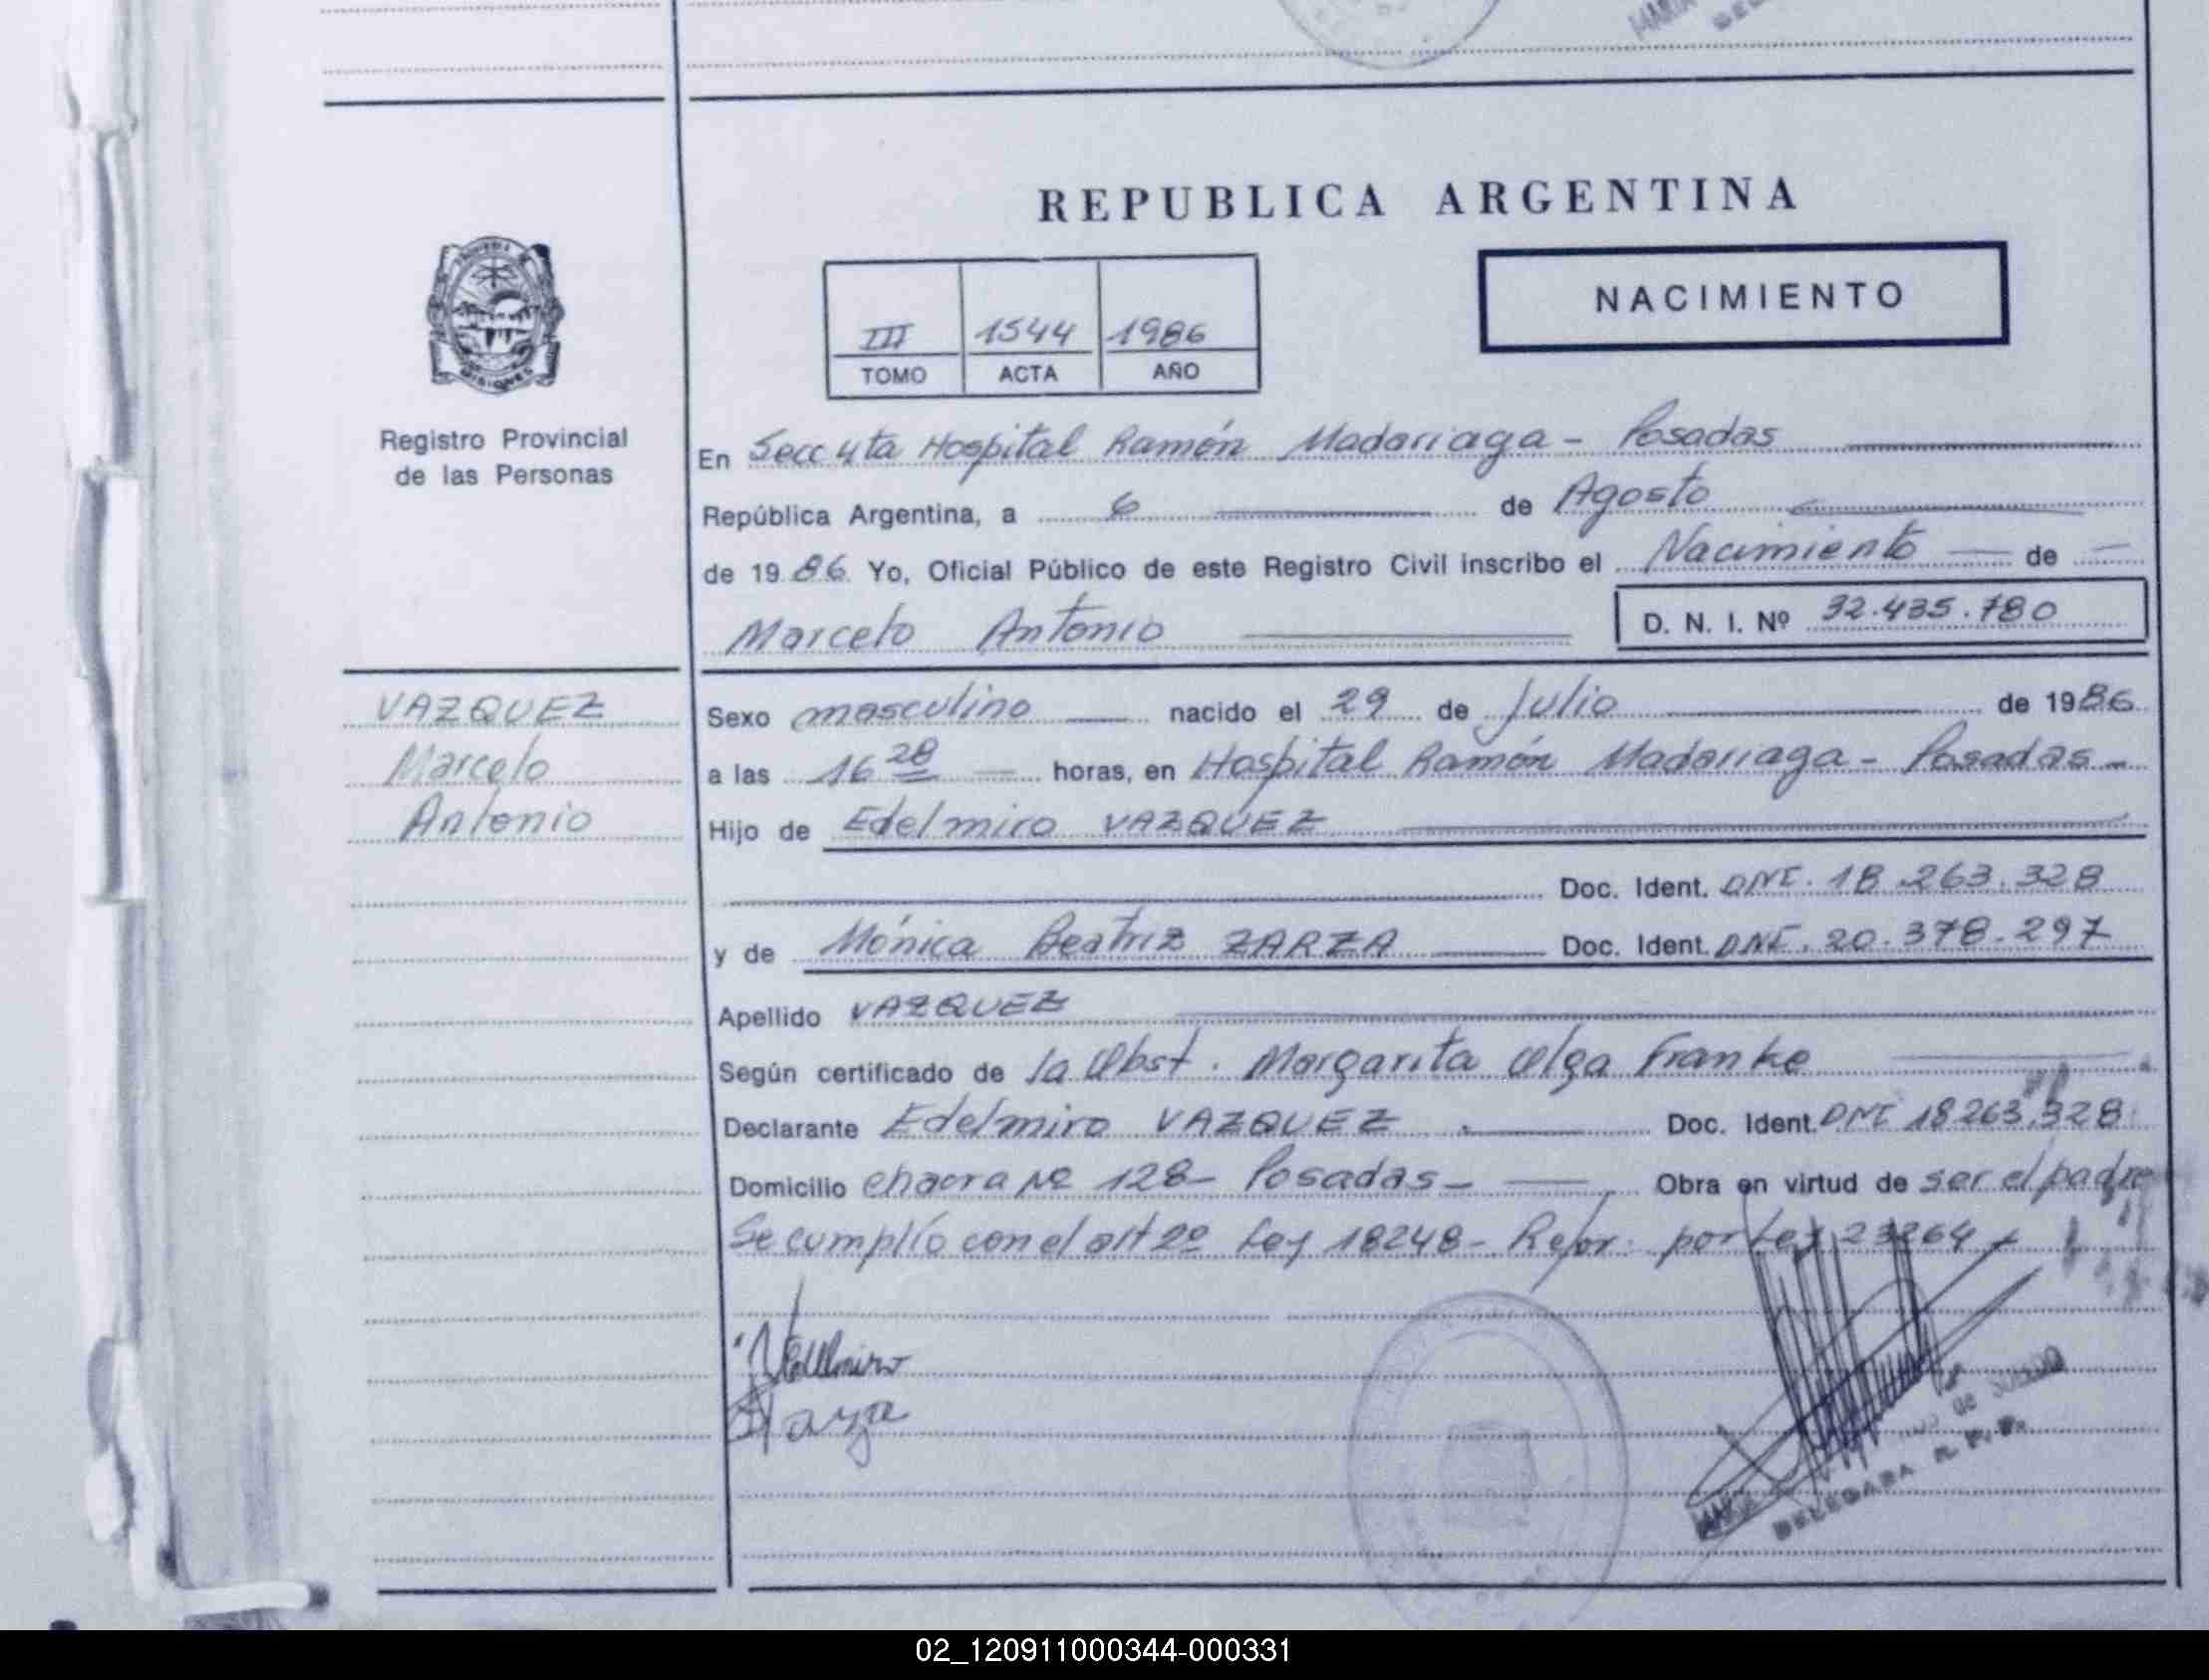 REPUBLICA ARGENTINA
NACIMIENTO
III 1544 1986
TOMO ACTA AÑO
MISIONES
Registro Provincial
de las Personas
En Secc 4ta Hospital Ramón Madariaga - Posadas
República Argentina, a 6 de Agosto
de 1986 Yo, Oficial Público de este Registro Civil inscribo el Nacimiento de
Marcelo Antonio D. N. I. Nº 32.435.780
VAZQUEZ
Marcelo
Antonio
Sexo masculino nacido el 29 de Julio de 1986
a las 16 28 horas, en Hospital Ramón Madariaga - Posadas -
Hijo de Edelmiro VAZQUEZ
Doc. Ident. DNI. 18.263.328
y de Mónica Beatriz ZARZA Doc. Ident. DNI. 20.378.297
Apellido VAZQUEZ
Según certificado de la Obst. Margarita Olga Franke
Declarante Edelmiro VAZQUEZ Doc. Ident. DNI 18263.328
Domicilio chacra Nº 128 - Posadas - Obra en virtud de ser el padre
Se cumplío con el art 2º Ley 18248 - Refor. por Ley 23264
DELEGADA R. P. P.
02_120911000344-000331